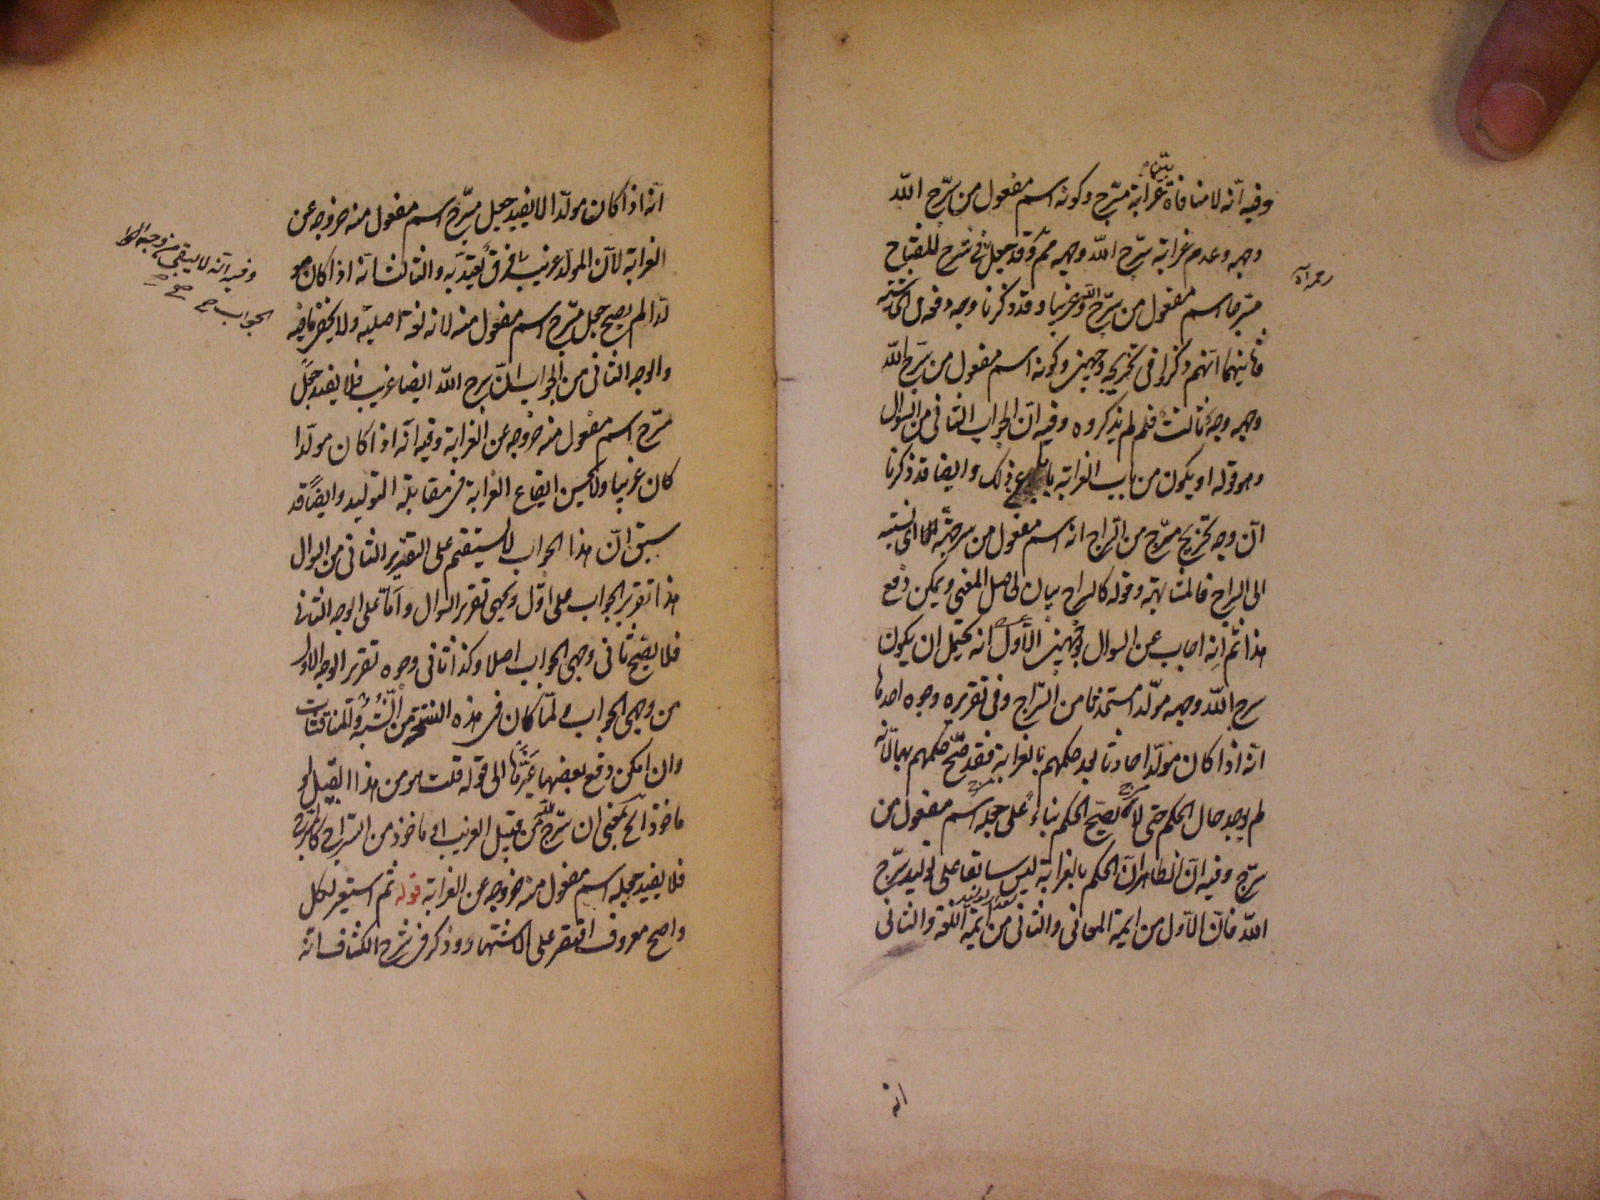 بين
وفيه انّه لا منافاة غرابة مسرّج وكونه اسم مفعول من سرّج اللّه
وجهه وعدم غرابة سرّج اللّه وجهه ثم وقد جعل في شرح المفتاح
مسرجا اسم مفعول من سرّج اللّه وغريبا وقد ذكرنا وجه دفعه في الحاشية
ثانيهما انّهم ذكروا في تخريجه وجهين وكونه اسم مفعول من سرّج اللّه
وجهه وجه ثالث فلم لم يذكروه وفيه انّ الجواب الثاني من السوال
وهو قوله او يكون من باب الغرابة عن ذلك وايضا قد ذكرنا
انّ وجه تخريج مسرّج من السّراج انه اسم مفعول من سرجته اى نسبته
الى السراج فالمشابهة وقوله كالسراج بيان لحاصل المعنى ويمكن دفع
هذا ثم انه اجاب عن السوال بوجهين الاوّل انه يحتمل ان يكون
سرج اللّه وجهه مولّدا مستحدثا من السّراج وفي تقريره وجوه احدها
انّه اذا كان مولّدا حادثا بعد حكمهم بالغرابة فقد صحّ حكمهم بها لانّه
لم يوجد حال الحكم حتى لا يصحّ الحكم بناء على جعله اسم مفعول من
سرّج وفيه انّ الظاهر انّ الحكم بالغرابة ليس سابقا على توليد سرّج
اللّه فانّ الاوّل من ايمة المعانى والثانى من ايمة اللغة والثانى
انه
انّه اذا كان مولّدا لا يفيد جعل مسرّج اسم مفعول منه خروجه عن
الغرابة لانّ المولّد غريب لا فرق يعتدّ به والثالث انّه اذا كان مو
لّدا لم يصح جعل مسرّج اسم مفعول منه لانه لغة اصلية ولا يخفى ما فيه
والوجه الثانى من الجواب انّ سرج اللّه ايضا غريب فلا يفيد جعل
مسرّج اسم مفعول منه خروجه عن الغرابة وفيه انّه اذا كان مولّدا
كان غريبا ولا يحسن ايقاع الغرابة فى مقابلة التوليد وايضا قد
سبق انّ هذا الجواب لا يستقيم على التقدير الثانى من السوال
هذا تقرير الجواب على اوّل وجهى تقرير السوال وامّا على الوجه الثانى
فلا يصحّ ثانى وجهى الجواب اصلا وكذا ثانى وجوه تقرير الوجه الاول
من وجهى الجواب ولمّا كان فى هذه النسخة من والمناقشات
وان امكن دفع بعضها غيّرها الى قوله قلت هو من هذا القبيل او
ماخوذ الخ بمعنى ان سرّج اللّه من قبيل الغريب او ماخوذ من السّراج كالمسرّج
فلا يفيد جعله اسم مفعول منه خروجه عن الغرابة قوله ثم استعير لكل
واضح معروف اقتصر على الاشتهار وذكر فى شرح الكشاف انّه
وفيه انّه لا يبقى من وجه
الجواب